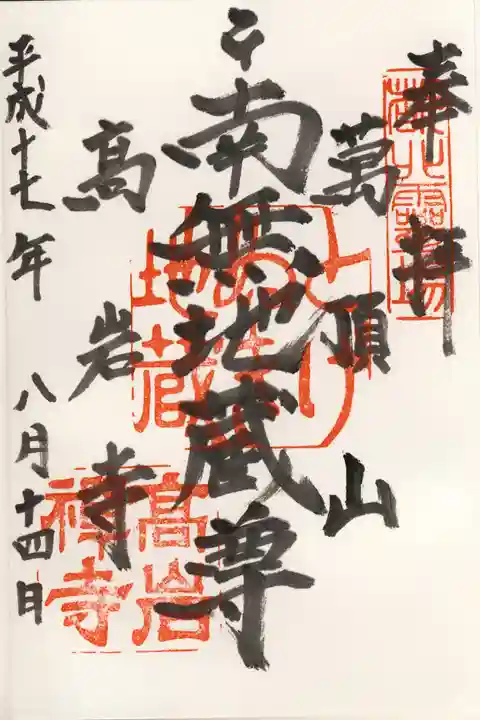 奉拝
萬頂山
南無地蔵尊
高岩寺
平成十七年 八月十四日
とげぬき
地蔵
高岩
禅寺